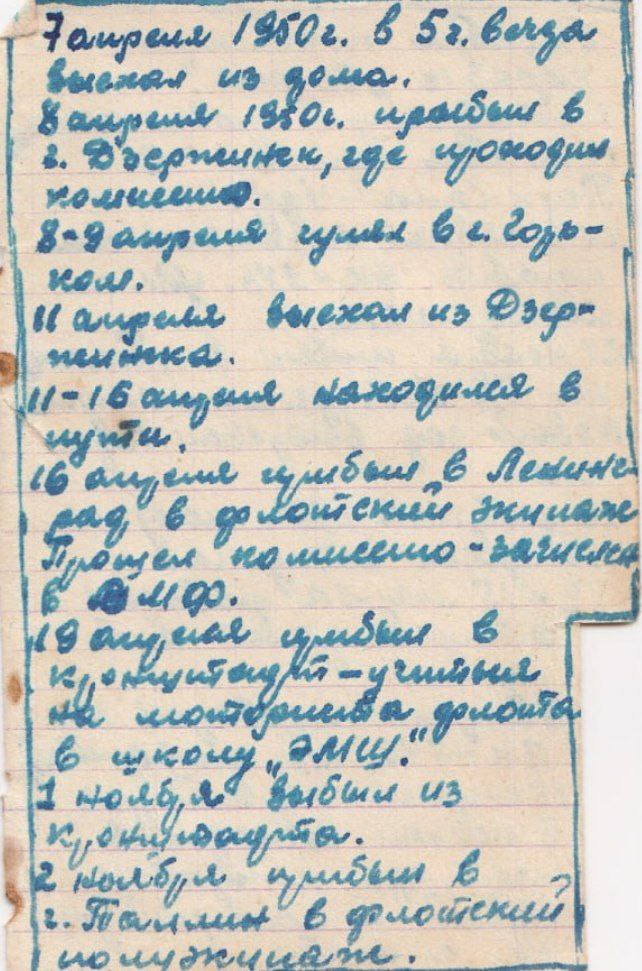 7 апреля 1950г. в 5г. вечера
выехал из дома.
8 апреля 1950г. прибыл в
г. Дзержинск, где проходил
комиссию.
8-9 апреля гулял в г. Горь-
ком.
11 апреля выехал из Дзер-
жинска.
11-16 апреля находился в
пути.
16 апреля прибыл в Ленинг
рад в флотский экипаж
Прошел комиссию - зачислен
в ВМФ.
19 апреля прибыл в
Кронштадт - учиться
на моториста флота
в школу „ЭМШ."
1 ноября выбыл из
Кронштадта.
2 ноября прибыл в
г. Таллин в флотский
полуэкипаж.